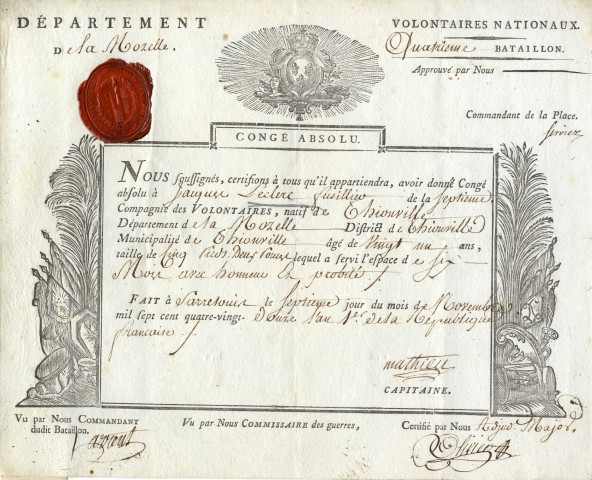 DÉPARTEMENT
De la Mozelle.
VOLONTAIRES NATIONAUX.
Quatrieme BATAILLON.
Approuvé par Nous
Commandant de la Place.
CONGÉ ABSOLU.
NOUS soussignés, certifions à tous qu'il appartiendra, avoir donné Congé
absolu à Jacques Leclerc fusillier de la septieme
Compagnie des VOLONTAIRES, natif de Thionville
Département de la Mozelle District de Thionville
Municipalité de Thionville âgé de vingt un ans,
taille de Cinq pieds Deux pouces lequel a servi l'espace de six
Mois avec honneur et probité
FAIT à Sarrelouis le septieme jour du mois de Novembre
mil sept cent quatre-vingt-Douze l'an 1er de la République
francaise
mathieu
CAPITAINE.
Vu par Nous COMMANDANT
dudit Bataillon.
Vu par Nous COMMISSAIRE des guerres,
Certifié par Nous Adjud. Major